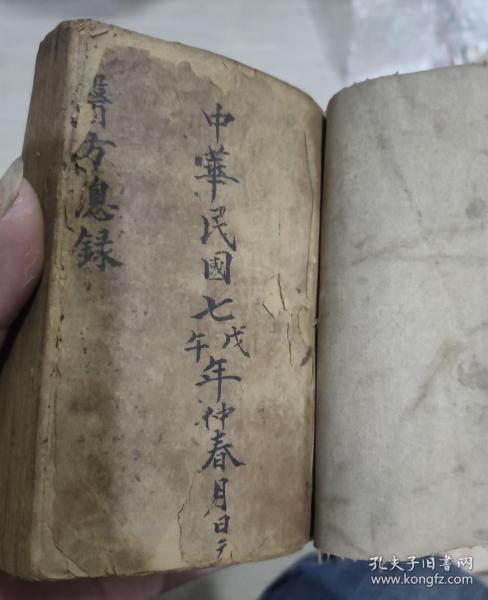 中華民國七戊午年仲春月日立
醫方總録
孔夫子旧书网
www.kongfz.com